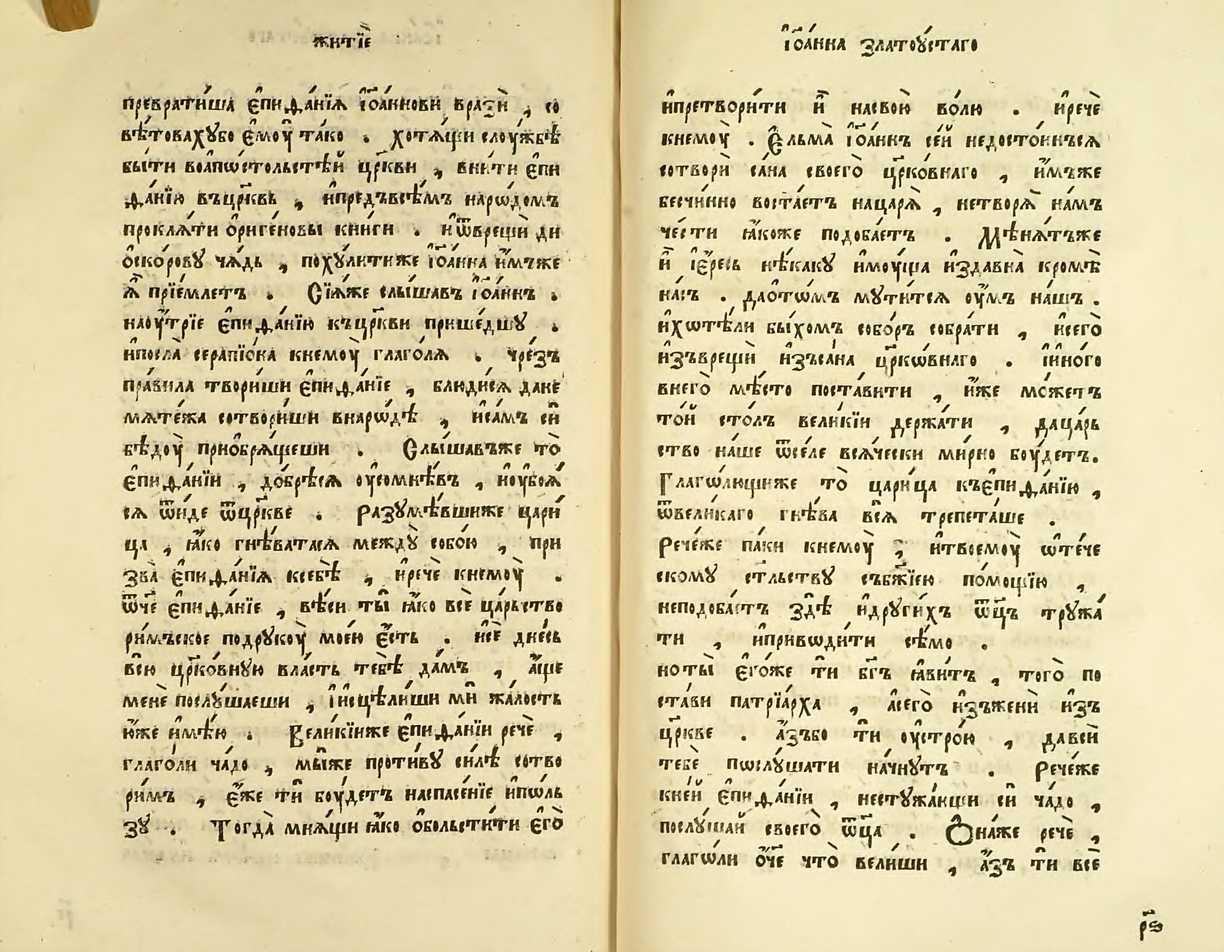 житїѐ
превратиша є҆пиѳа́нїѧ і҆ѡа́ннови вразѝ , со
вѣ́товахꙋбо є҆мꙋ̀ та́ко . хотѧ́щи слоу́жьбѣ
бы́ти воа҆пѡстольстѣ́й цр҃кви , вни́ти є҆пи
ѳа́нїю въцр҃квь , и҆предъвсѣ́мъ наро́домъ
проклѧ́ти ѻ҆риге́новы кни́ги . и҆ѿврещѝ ди
ѻ҆ско́ровꙋ ча́дь , похꙋли́тиже і҆ѡа́нна и҆́мъже
ѧ҆̀ прїе́млетъ . Сїѧ́же слы́шавъ і҆ѡа́ннъ .
наоу҆́трїе є҆пиѳа́нїю къцр҃кви прише́дшꙋ .
и҆посла̀ серапїо́на кнемоу̀ глаго́лѧ . чре́зъ
пра́вила твори́ши є҆пиѳа́нїе , блюди́сѧ дане
мѧте́жа сотвори́ши внаро́дѣ , и҆са́мъ сѝ
бѣдоу̀ приѻбрѧ́щеши . Слы́шавъже то̀
є҆пиѳа́нїи , до́брѣсѧ оу҆сомнѣ́въ , и҆оубоѧ́
сѧ ѿи́де ѿцр҃кве . разꙋмѣ́вшиже цари́
ца , ꙗ҆́ко гнѣ́ватасѧ междꙋ̀ собо́ю , при
зва̀ є҆пиѳа́нїѧ ксебѣ̀ , и҆речѐ кнемоу̀ .
ѿче є҆пиѳа́нїе , вѣ́си ты̀ ꙗ҆́ко всѐ ца́рьство
ри́мъское подрꙋко́ꙋ мое́ю є҆́сть . и҆сѐ дне́сь
всю̀ цр҃ко́внꙋю вла́сть тебѣ̀ да́мъ , а҆́ще
менѐ послꙋ́шаеши , і҆исцѣли́ши мѝ жа́лость
ю҆́же и҆мѣ́ю . Вели́кїиже є҆пиѳа́нїи речѐ ,
глаго́ли ча́до , мы́же проти́вꙋ си́лѣ сотво
ри́мъ , є҆́же тѝ боу́детъ наспасе́нїе и҆по́ль
зꙋ . Тогда̀ мнѧ́щи ꙗ҆́ко ѻ҆больсти́ти є҆го̀
і҆ѡа́нна златоꙋ́стаго
и҆претвори́ти и҆̀ насвою̀ во́лю . и҆речѐ
кнемоу̀ . Є҆льма̀ і҆ѡа́ннъ се́й недосто́инъсѧ
сотворѝ са́на своего̀ цр҃ко́внаго , и҆́мъже
бесчи́нно востае́тъ нацарѧ̀ , нетворѧ̀ на́мъ
че́сти ꙗ҆́коже подоба́етъ . Мѣнѧ́тъже
и҆̀ і҆е́ресь нѣ́какꙋ и҆моу́ща и҆здавна̀ кромѣ̀
на́съ . даѻ҆то́мъ мꙋти́тсѧ оу҆́мъ на́шъ .
и҆хѡтѣ́ли бы́хомъ собо́ръ собра́ти , и҆сего̀
и҆зъврещѝ и҆зъса́на цр҃кѡ́внаго . і҆и҆но́го
внего̀ мѣ́сто поста́вити , и҆́же мо́жетъ
то́й сто́лъ вели́кїи держа́ти , даца́рь
ство на́ше ѿсе́ле всѧ́чески ми́рно боу́детъ.
Глаго́лющиже то̀ цари́ца къє҆пиѳа́нїю ,
ѿвели́каго гнѣ́ва всѧ̀ трепета́ше .
Рече́же па́ки кнемоу̀ , и҆твоемоу̀ ѡ҆те́че
скомꙋ ст҃льствꙋ събж҃їею по́мощїю ,
неподоба́етъ здѣ̀ и҆дрꙋги́хъ ѿц҃ъ трꙋжа́
ти , и҆привѡди́ти сѣ́мо .
но́ты є҆го́же тѝ бг҃ъ ꙗ҆ви́тъ , того̀ по
ста́ви патрїа́рха , а҆сего̀ и҆зженѝ и҆зъ
цр҃кве . а҆́зъбо тѝ оу҆стро́ю , давсѝ
тебѐ пѡслꙋ́шати начнꙋ́тъ . Рече́же
кне́й є҆пиѳа́нїи , нестꙋжа́ище сѝ ча́до ,
послꙋ́шай своего̀ ѿц҃а . Ѻ҆на́же речѐ ,
глаго́ли ѻ҆́че что̀ вели́ши , а҆́зъ тѝ всѐ
р҃ѕ